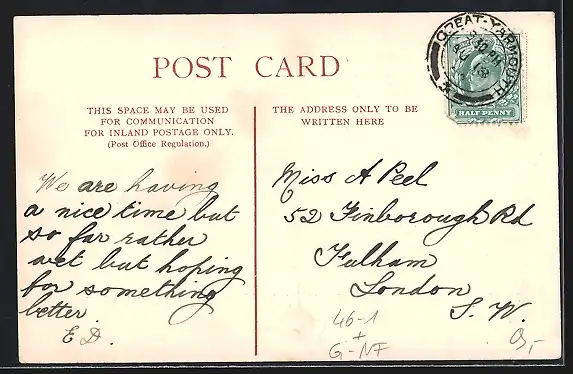 GREAT-YARMOUTH
HALF PENNY
POST CARD
THIS SPACE MAY BE USED
FOR COMMUNICATION
FOR INLAND POSTAGE ONLY.
(Post Office Regulation.)
THE ADDRESS ONLY TO BE
WRITTEN HERE
We are having
a nice time but
so far rather
wet but hoping
for something
better.
E D.
Miss A Peel
52 Finborough Rd
Fulham
London
S. W.
46-1
+
G-NF